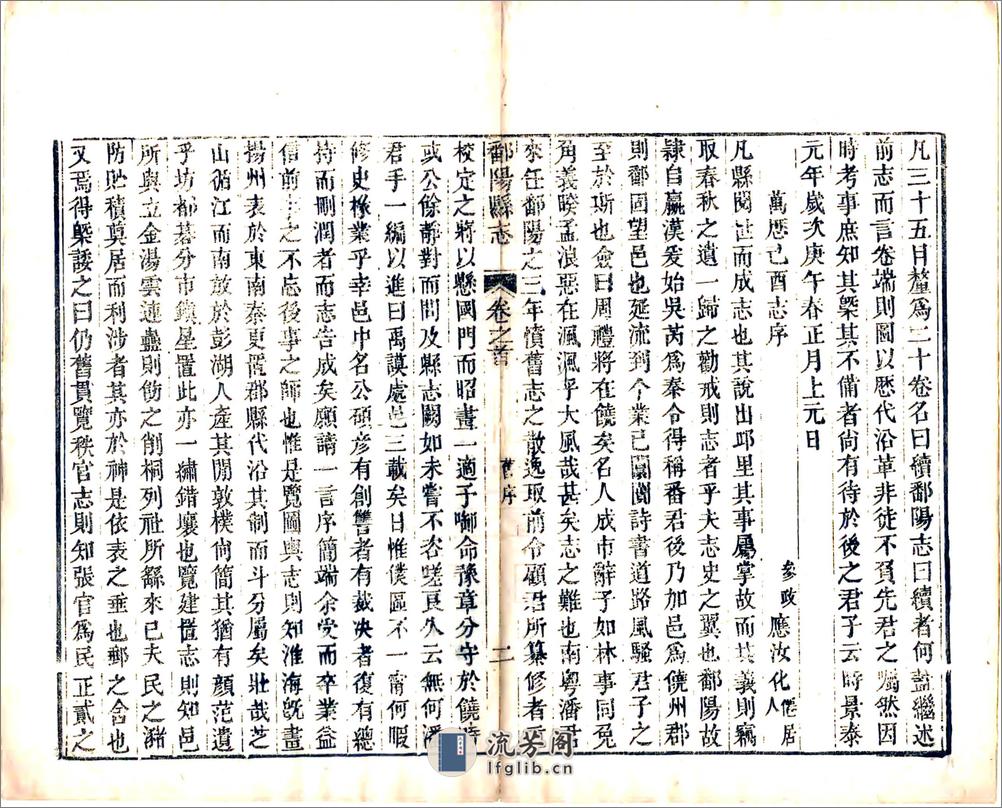 凡三十五目釐爲二十卷名曰續鄱陽志曰續者何葢繼述
前志而言卷端則圖以歷代沿革非徒不負先君之囑然因
時考事庶知其槩其不備者尙有待於後之君子云時景泰
元年歲次庚午春正月上元日
萬歷己酉志序 參政應汝化僊居人
凡縣閱世而成志也其說出邱里其事屬掌故而其義則竊
取春秋之遺一歸之勸戒則志者乎夫志史之翼也鄱陽故
隸自嬴漢爰始吳芮爲秦令得稱番君後乃加邑爲饒州郡
則鄱固望邑也延流到今業已闤闠詩書道路風騷君子之
至於斯也僉曰周禮將在饒矣名人成市辭子如林事同免
角義暌孟浪惡在渢渢乎大風哉甚矣志之難也南粵潘君
來任鄱陽之三年憤舊志之散逸取前令顧君所纂修者手
鄱陽縣志 卷之首 舊序 二
校定之將以懸國門而昭畫一適予啣命豫章分守於饒時
或公餘靜對而問及縣志闕如未嘗不咨嗟良久云無何潘
君手一編以進曰禹謨處邑三載矣日惟僕區不一甯何暇
修史椽業乎幸邑中名公碩彥有創讐者有裁決者復有總
持而刪潤者而志告成矣願請一言序簡端余受而卒業益
信前事之不忘後事之師也惟是覽圖輿志則知淮海旣畫
揚州表於東南秦更置郡縣代沿其制而斗分屬矣壯哉芝
山循江而南放於彭湖人產其閒敦樸尙簡其猶有顔范遺
乎坊都碁分市鎮星置此亦一繡錯壤也覽建置志則知邑
所與立金湯雲連蠱則飭之削桐列祉所繇來已夫民之瀦
防貯積奠居而利涉者其亦於神是依表之垂也郵之舍也
又焉得槩諉之曰仍舊貫覽秩官志則知張官爲民正貳之
流芳阁
lfglib.cn